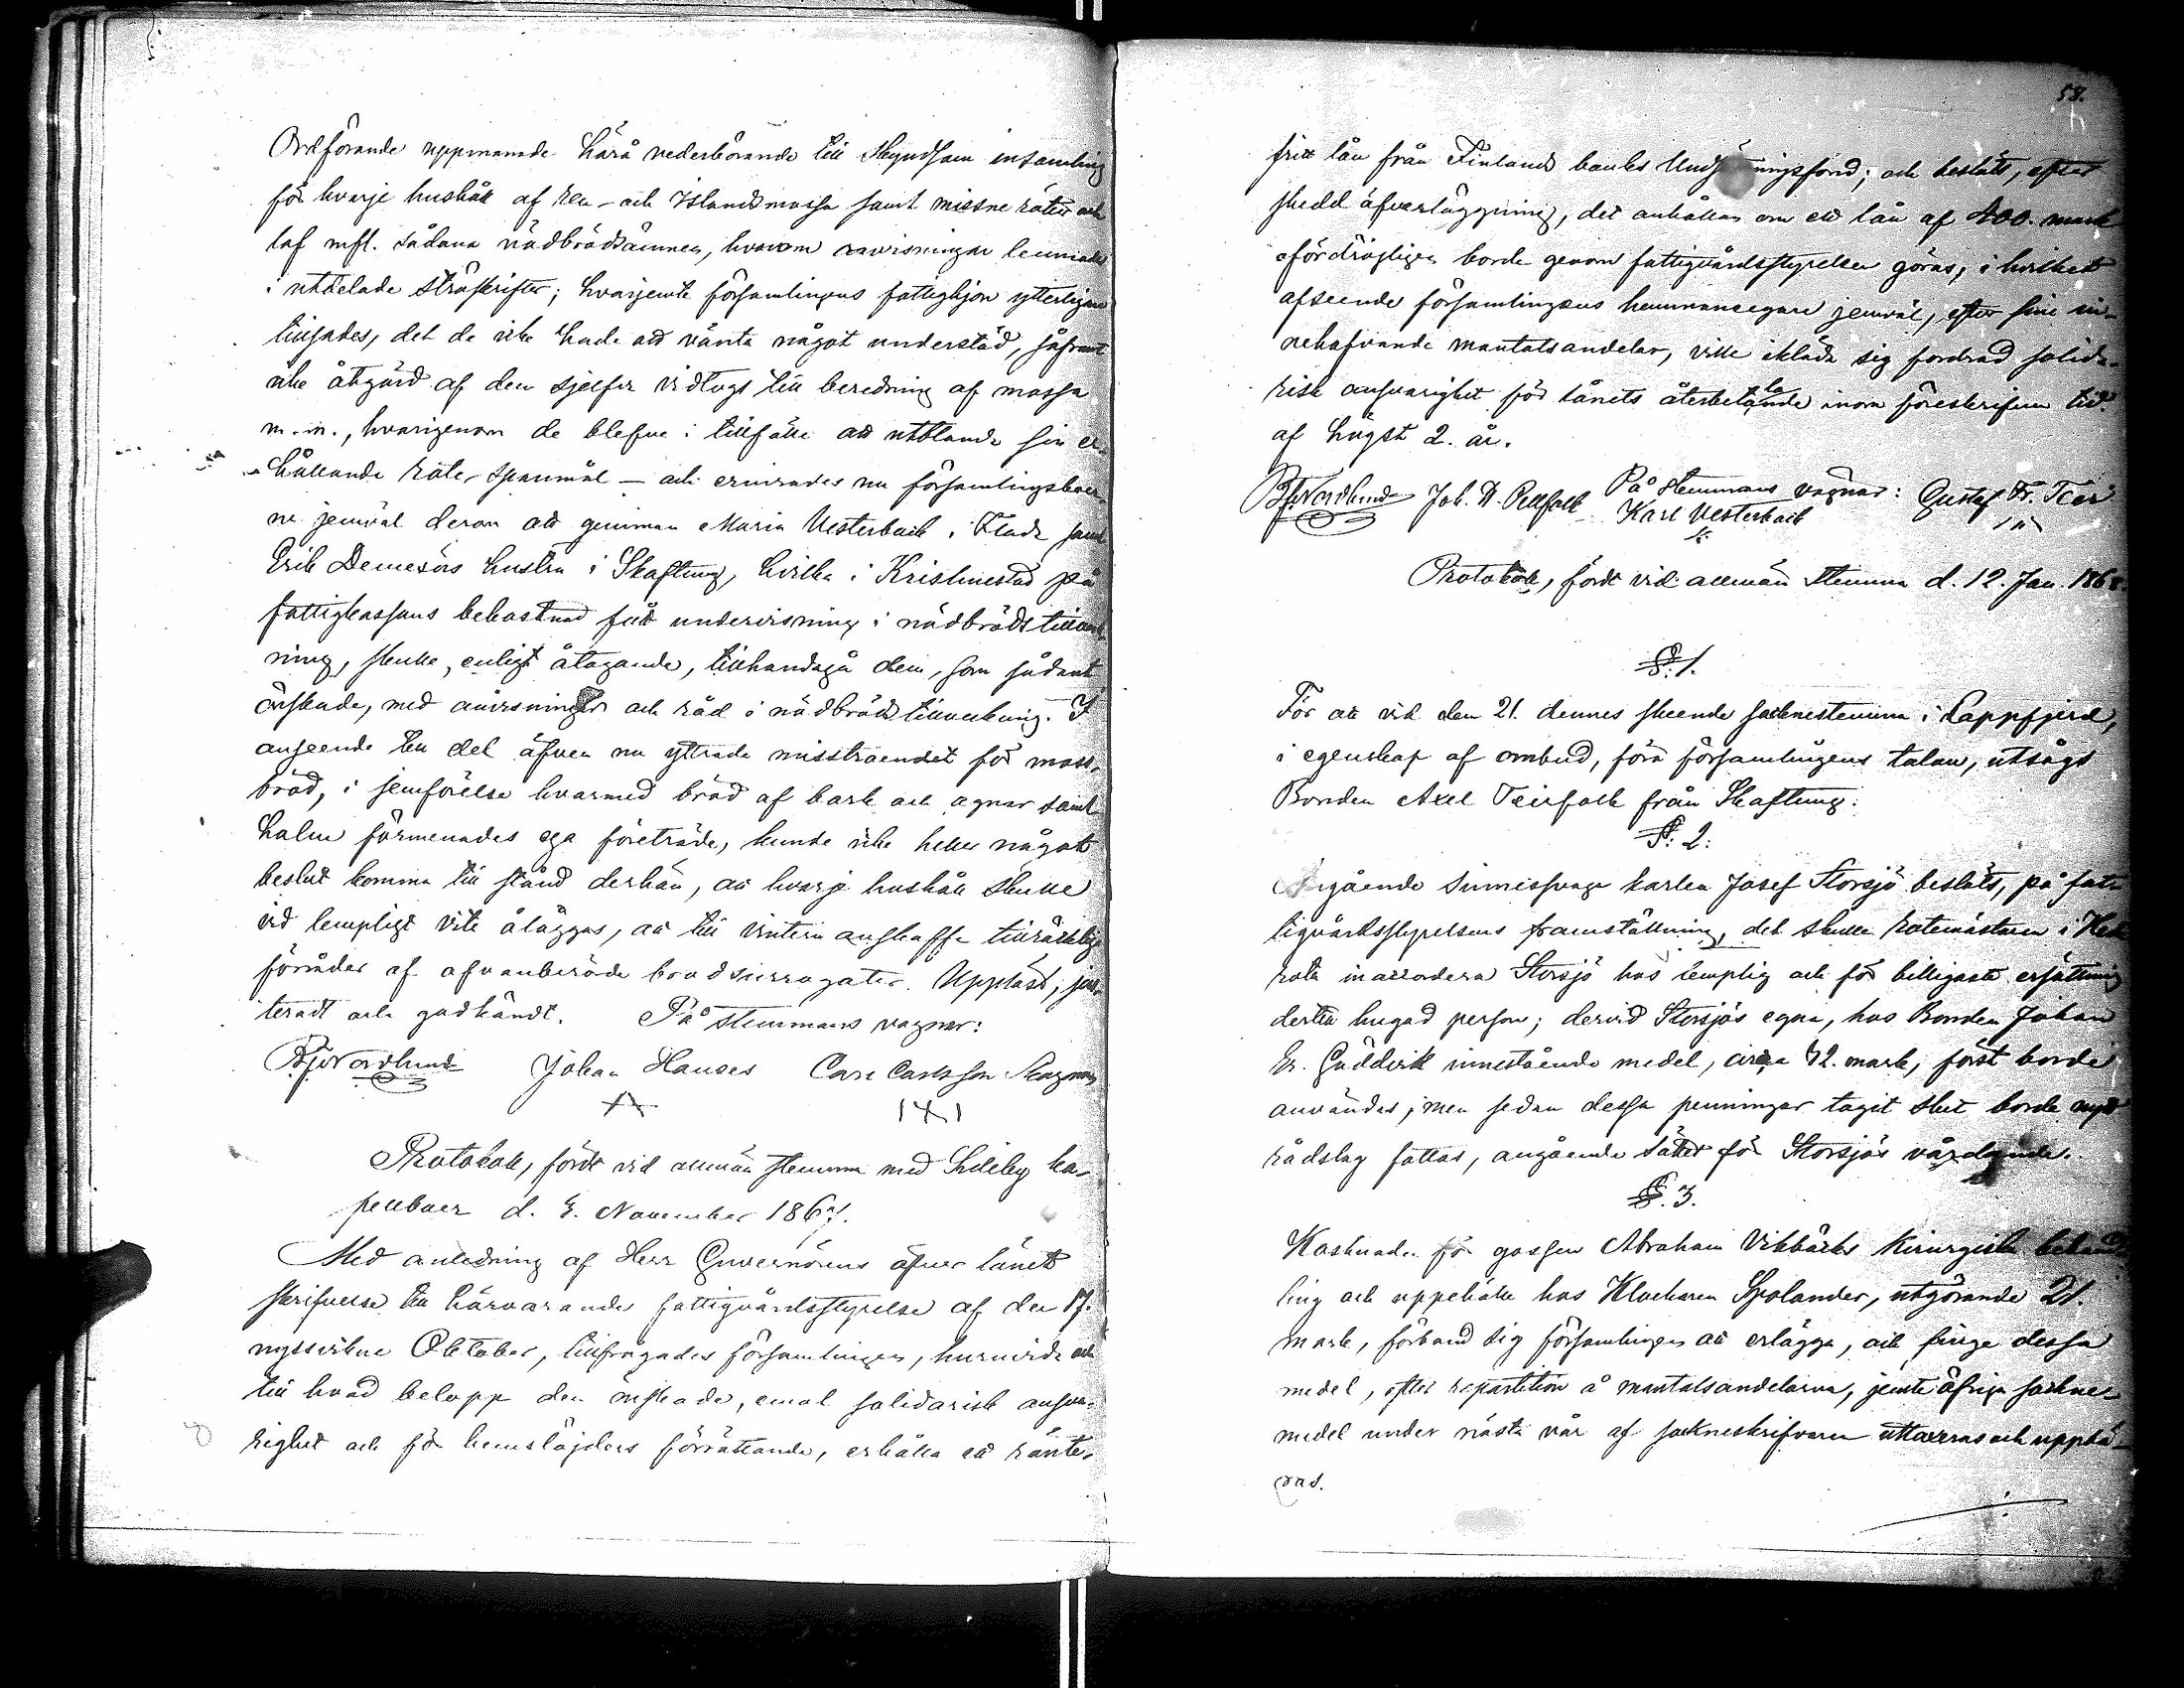 Ordförande uppmanade härå vederbörande till skyndsam insamling
för hvarje hushåll af ren- och Islandsmossa samt missne rötter och
laf mfl. sådana nödbrödsämnen, hvarom anvisningar lemnades
i utdelade ströskrifter; hvarjemte församlingens fattighjon ytterligare
tillsades, det de icke hade att vänta något understöd, såframt
icke åtgärd af dem sjelfva vidtogs till beredning af mossa
m.m., hvarigenom de blefve i tillfälle att utblanda sin er-
hållande rote-spanmål – och erinrades nu församlingsboer-
ne jemväl derom att qvinnan Maria Westerback i Flada samt
Erik Demesörs hustru i Skaftung, hvilka i Kristinestad på
fattigkassans bekostnad fått undervisning i nödbröds tillverk-
ning, skulle, enligt åtagande, tillhandagå dem, som sådant
önskade, med anvisningar och råd i nödbröds tillverkning. I
anseende till det äfven nu yttrade misstroendet för moss-
bröd, i jemförelse hvarmed bröd af bark och agnar samt
halm förmenades ega företräde, kunde icke heller något
beslut komma till stånd derhän, att hvarje hushåll skulle
vid lempligt vite åläggas, att till vintern anskaffa tillräcklige
förråder af ofvanberörde brödsurrogater. Uppläst, jus-
teradt och godkändt. På stemmans vägnar:
Bj Nordlund Johan Hanses Carl Carlsson
Protokoll, fördt vid allmän stemma med Sideby ka-
pellboer d. 3. November 1867.
Med anledning af Herr Guvernörens öfver länet
skrifvelse till härvarande fattigvårdsstyrelse af den 17.
nyssvikne Oktober, tillfrågades församlingen, huruvida och
till hvad belopp den önskade, emot solidarisk ansva-
righet och för hemslöjders förrättande, erhålla ett ränte-
58.
fritt lån från Finlands banks Undsättningsfond; och beslöts, efter
skedd öfverläggning, det anhållan om ett lån af 400. mark
ofördröjligen borde genom fattigvårdsstyrelsen göras, i hvilket
afseende församlingens hemmansegare jemväl, efter sine in-
nehafvande mantalsandelar, ville ikläda sig fordrad solida-
risk ansvarighet för lånets återbetalande inom föreskrifven tid
af högst 2. år.
Bj Nordlund Joh. H. Rosfolk På stemmans vägnar: Gustaf Fr. Teir
Karl Westerback
Protokoll, fördt vid allmän stemma d. 12. Jan. 1868.
§. 1.
För att vid den 21. dennes skeende sockenstemma i Lappfjerd,
i egenskap af ombud, föra församlingens talan, utsågs
Bonden Axel Teirfolk från Skaftung.
§. 2.
Angående sinnessvage karlen Josef Storsjö beslöts, på fat-
tigvårdsstyrelsens framställning, det skulle rotemästaren i
rota inackordera Storsjö hos lemplig och för billigaste ersättning
dertill hugad person; dervid Storsjös egna, hos Bonden Johan
Er. Gäddisk innestående medel, cirka 72. mark, först borde
användas; men sedan dessa penningar tagit slut borde nytt
rådslag fattas, angående sättet för Storsjös vårdande.
§. 3.
Kostnaden för gossen Abraham Vikbäcks kirurgiska behand-
ling och uppehälle hos Klockaren Spolander, utgörande 21.
mark, förband sig församlingen att erlägga, och finge dessa
medel, efter repartition å mantalsandelarna, jemte öfriga sockne-
medel under nästa vår af socknskrifvaren uttaxeras och uppbä-
ras.